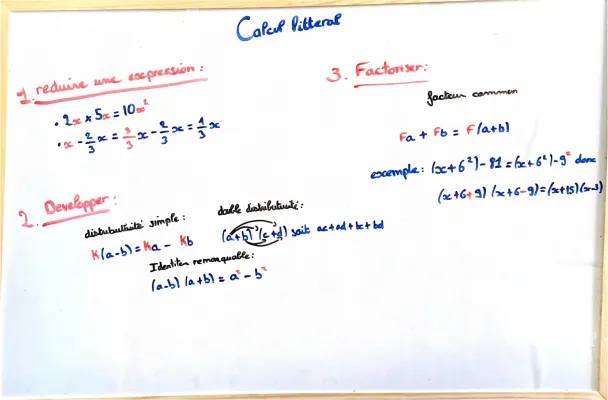 Calcul littéral
1. reduire une expression :
• 2x × 5x = 10x²
• x - 2/3 x = 3/3 x - 2/3 x = 1/3 x
2. Developper :
distributivité simple :
K(a-b) = Ka - Kb
double distributivité :
(a+b) (c+d) soit ac+ad+bc+bd
Identitée remarquable :
(a-b) (a+b) = a² - b²
3. Factoriser :
facteur commun
Fa + Fb = F(a+b)
exemple : (x+6²)-81 = (x+6²)-9² donc
(x+6+9) (x+6-9) = (x+15)(x-3)